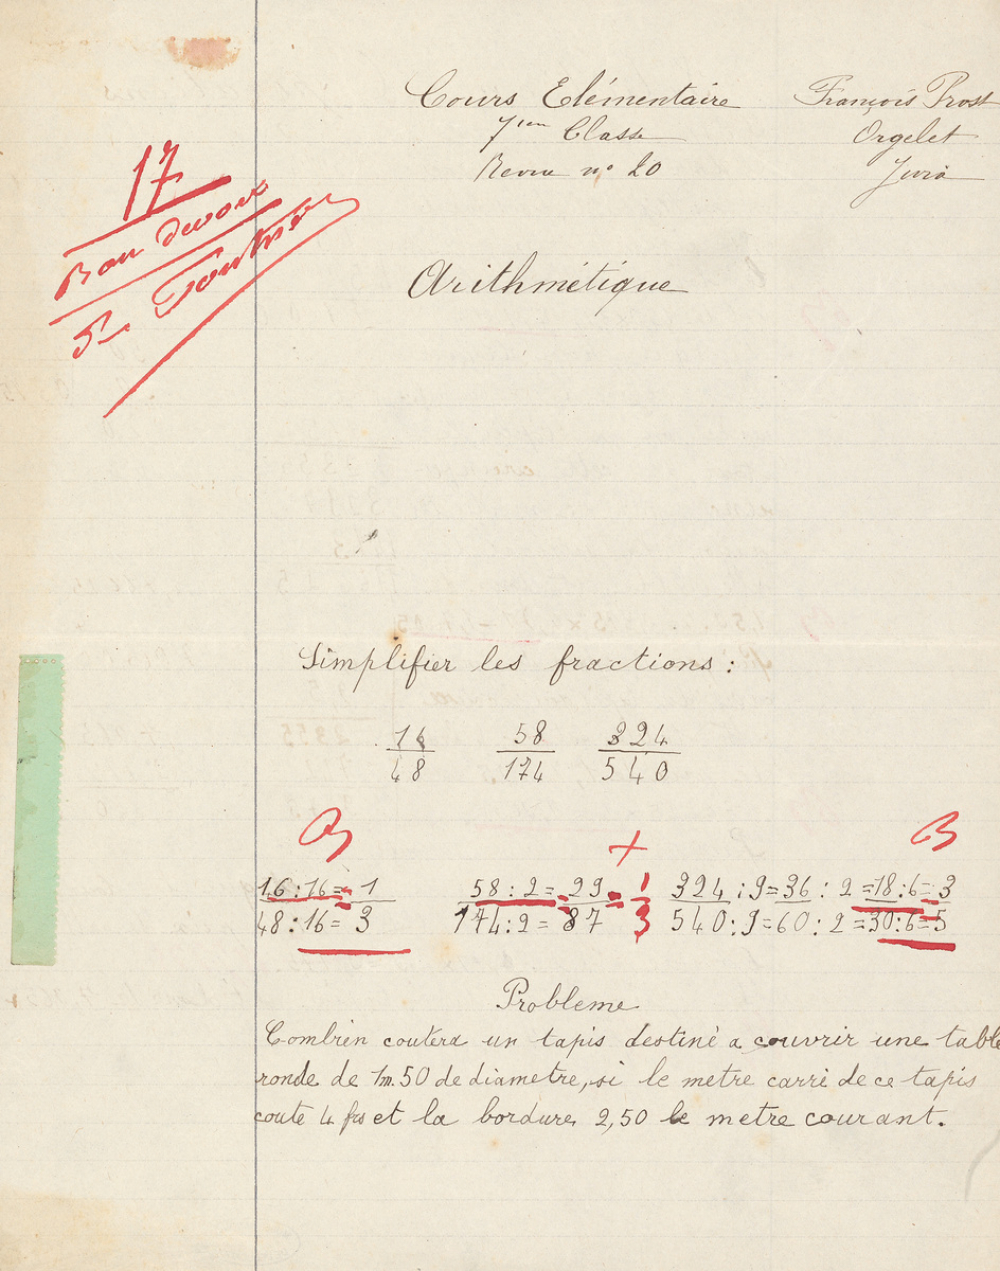 Cours Elémentaire François Prost
7ème Classe Orgelet
Revue n° 20 Jura
17
Bon devoir
Arithmétique
Simplifier les fractions :
16 58 324
48 174 540
B + B
16 : 16 = 1 58 : 2 = 29 = 1 324 : 9 = 36 : 2 = 18 : 6 = 3
48 : 16 = 3 174 : 2 = 87 = 3 540 : 9 = 60 : 2 = 30 : 6 = 5
Probleme
Combien coutera un tapis destiné a couvrir une table
ronde de 1m.50 de diametre, si le metre carré de ce tapis
coute 4 frs et la bordure 2,50 le metre courant.